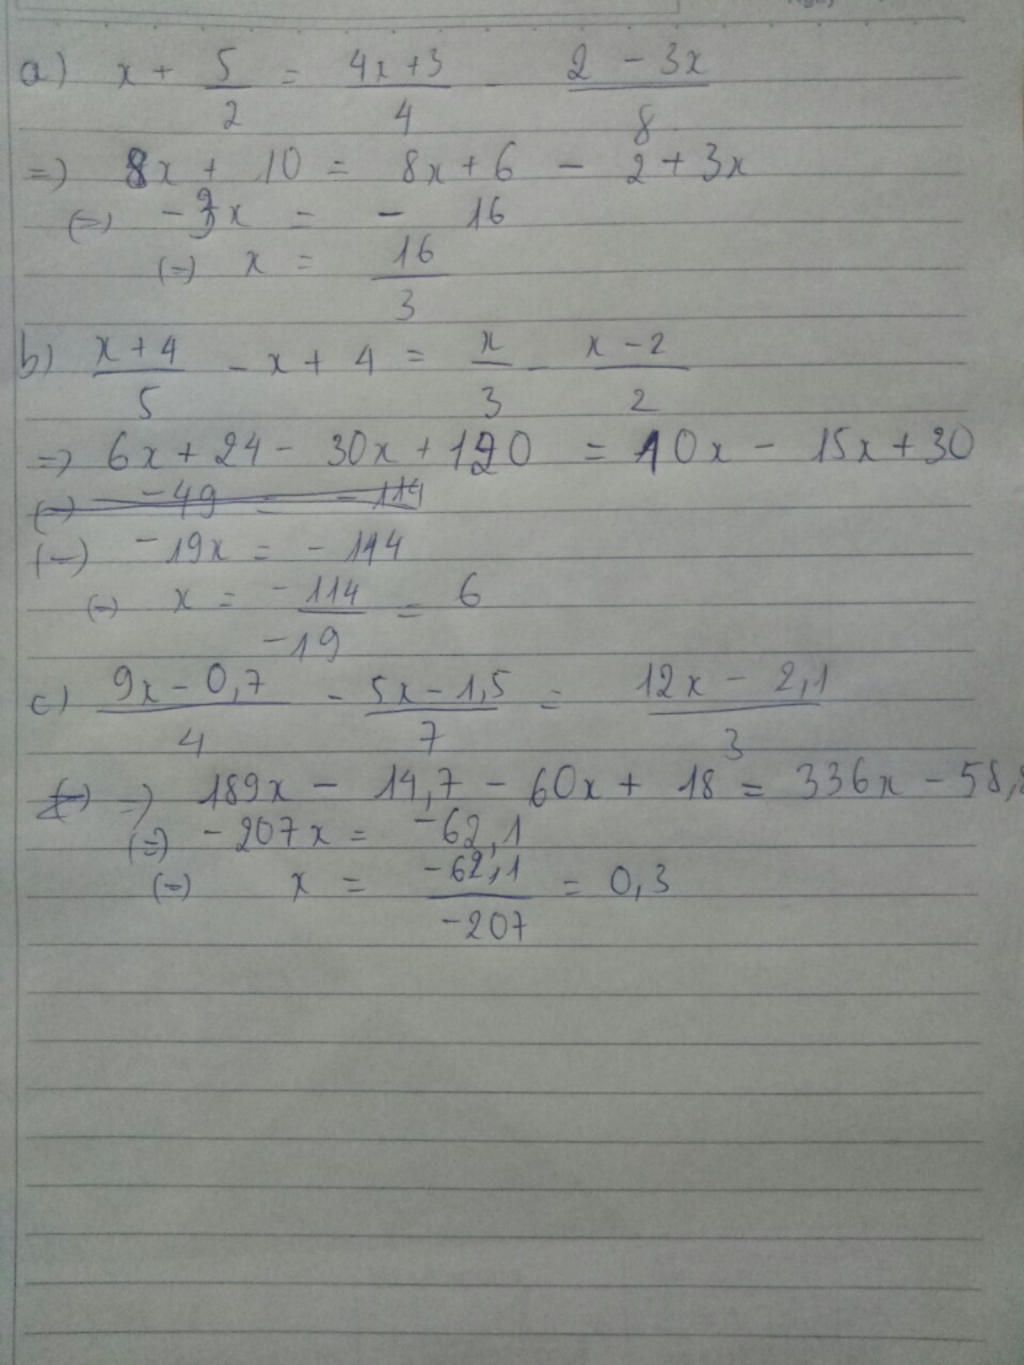 a) x + 5/2 = (4x+3)/4 - (2 - 3x)/8
=) 8x + 10 = 8x + 6 - 2 + 3x
(=) -3x = - 16
(=) x = 16/3
b) (x+4)/5 - x + 4 = x/3 - (x-2)/2
=) 6x + 24 - 30x + 120 = 10x - 15x + 30
(=) -49 = -114
(=) -19x = -114
(=) x = -114/-19 = 6
c) (9x - 0,7)/4 - (5x - 1,5)/7 = (12x - 2,1)/3
=) 189x - 14,7 - 60x + 18 = 336x - 58,8
(=) -207x = -62,1
(=) x = -62,1/-207 = 0,3